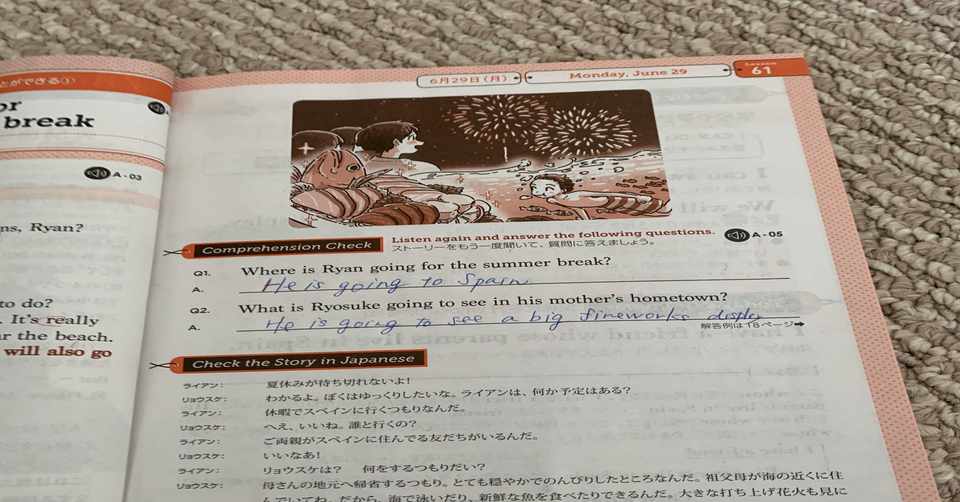 とができる①
or
break
A-03
ns, Ryan?
to do?
. It's really
ar the beach.
will also go
6月29日(月)
Monday, June 29
Lesson
61
Comprehension Check
Listen again and answer the following questions.
ストーリーをもう一度聞いて、質問に答えましょう。
A-05
Q1. Where is Ryan going for the summer break?
A. He is going to Spain.
Q2. What is Ryosuke going to see in his mother's hometown?
A. He is going to see a big fineworks display
解答例は18ページ➡
Check the Story in Japanese
ライアン: 夏休みが待ち切れないよ!
リョウスケ: わかるよ。ぼくはゆっくりしたいな。ライアンは、何か予定はある?
ライアン: 休暇でスペインに行くつもりなんだ。
リョウスケ: へえ、いいね。誰と行くの?
ライアン: ご両親がスペインに住んでる友だちがいるんだ。
リョウスケ: いいなあ!
ライアン: リョウスケは? 何をするつもりだい?
リョウスケ: 母さんの地元へ帰省するつもり。とても穏やかでのんびりしたところなんだ。祖父母が海の近くに住
んでいてね。だから、海で泳いだり、新鮮な魚を食べたりできるんだ。大きな打ち上げ花火も見に